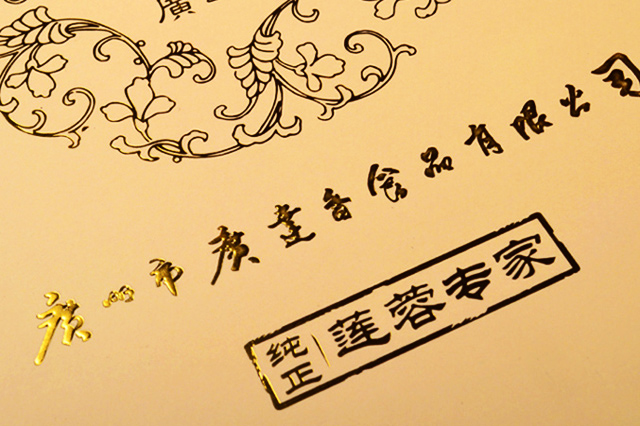 廣
廣州市廣達香食品有限公司
纯正
莲蓉专家